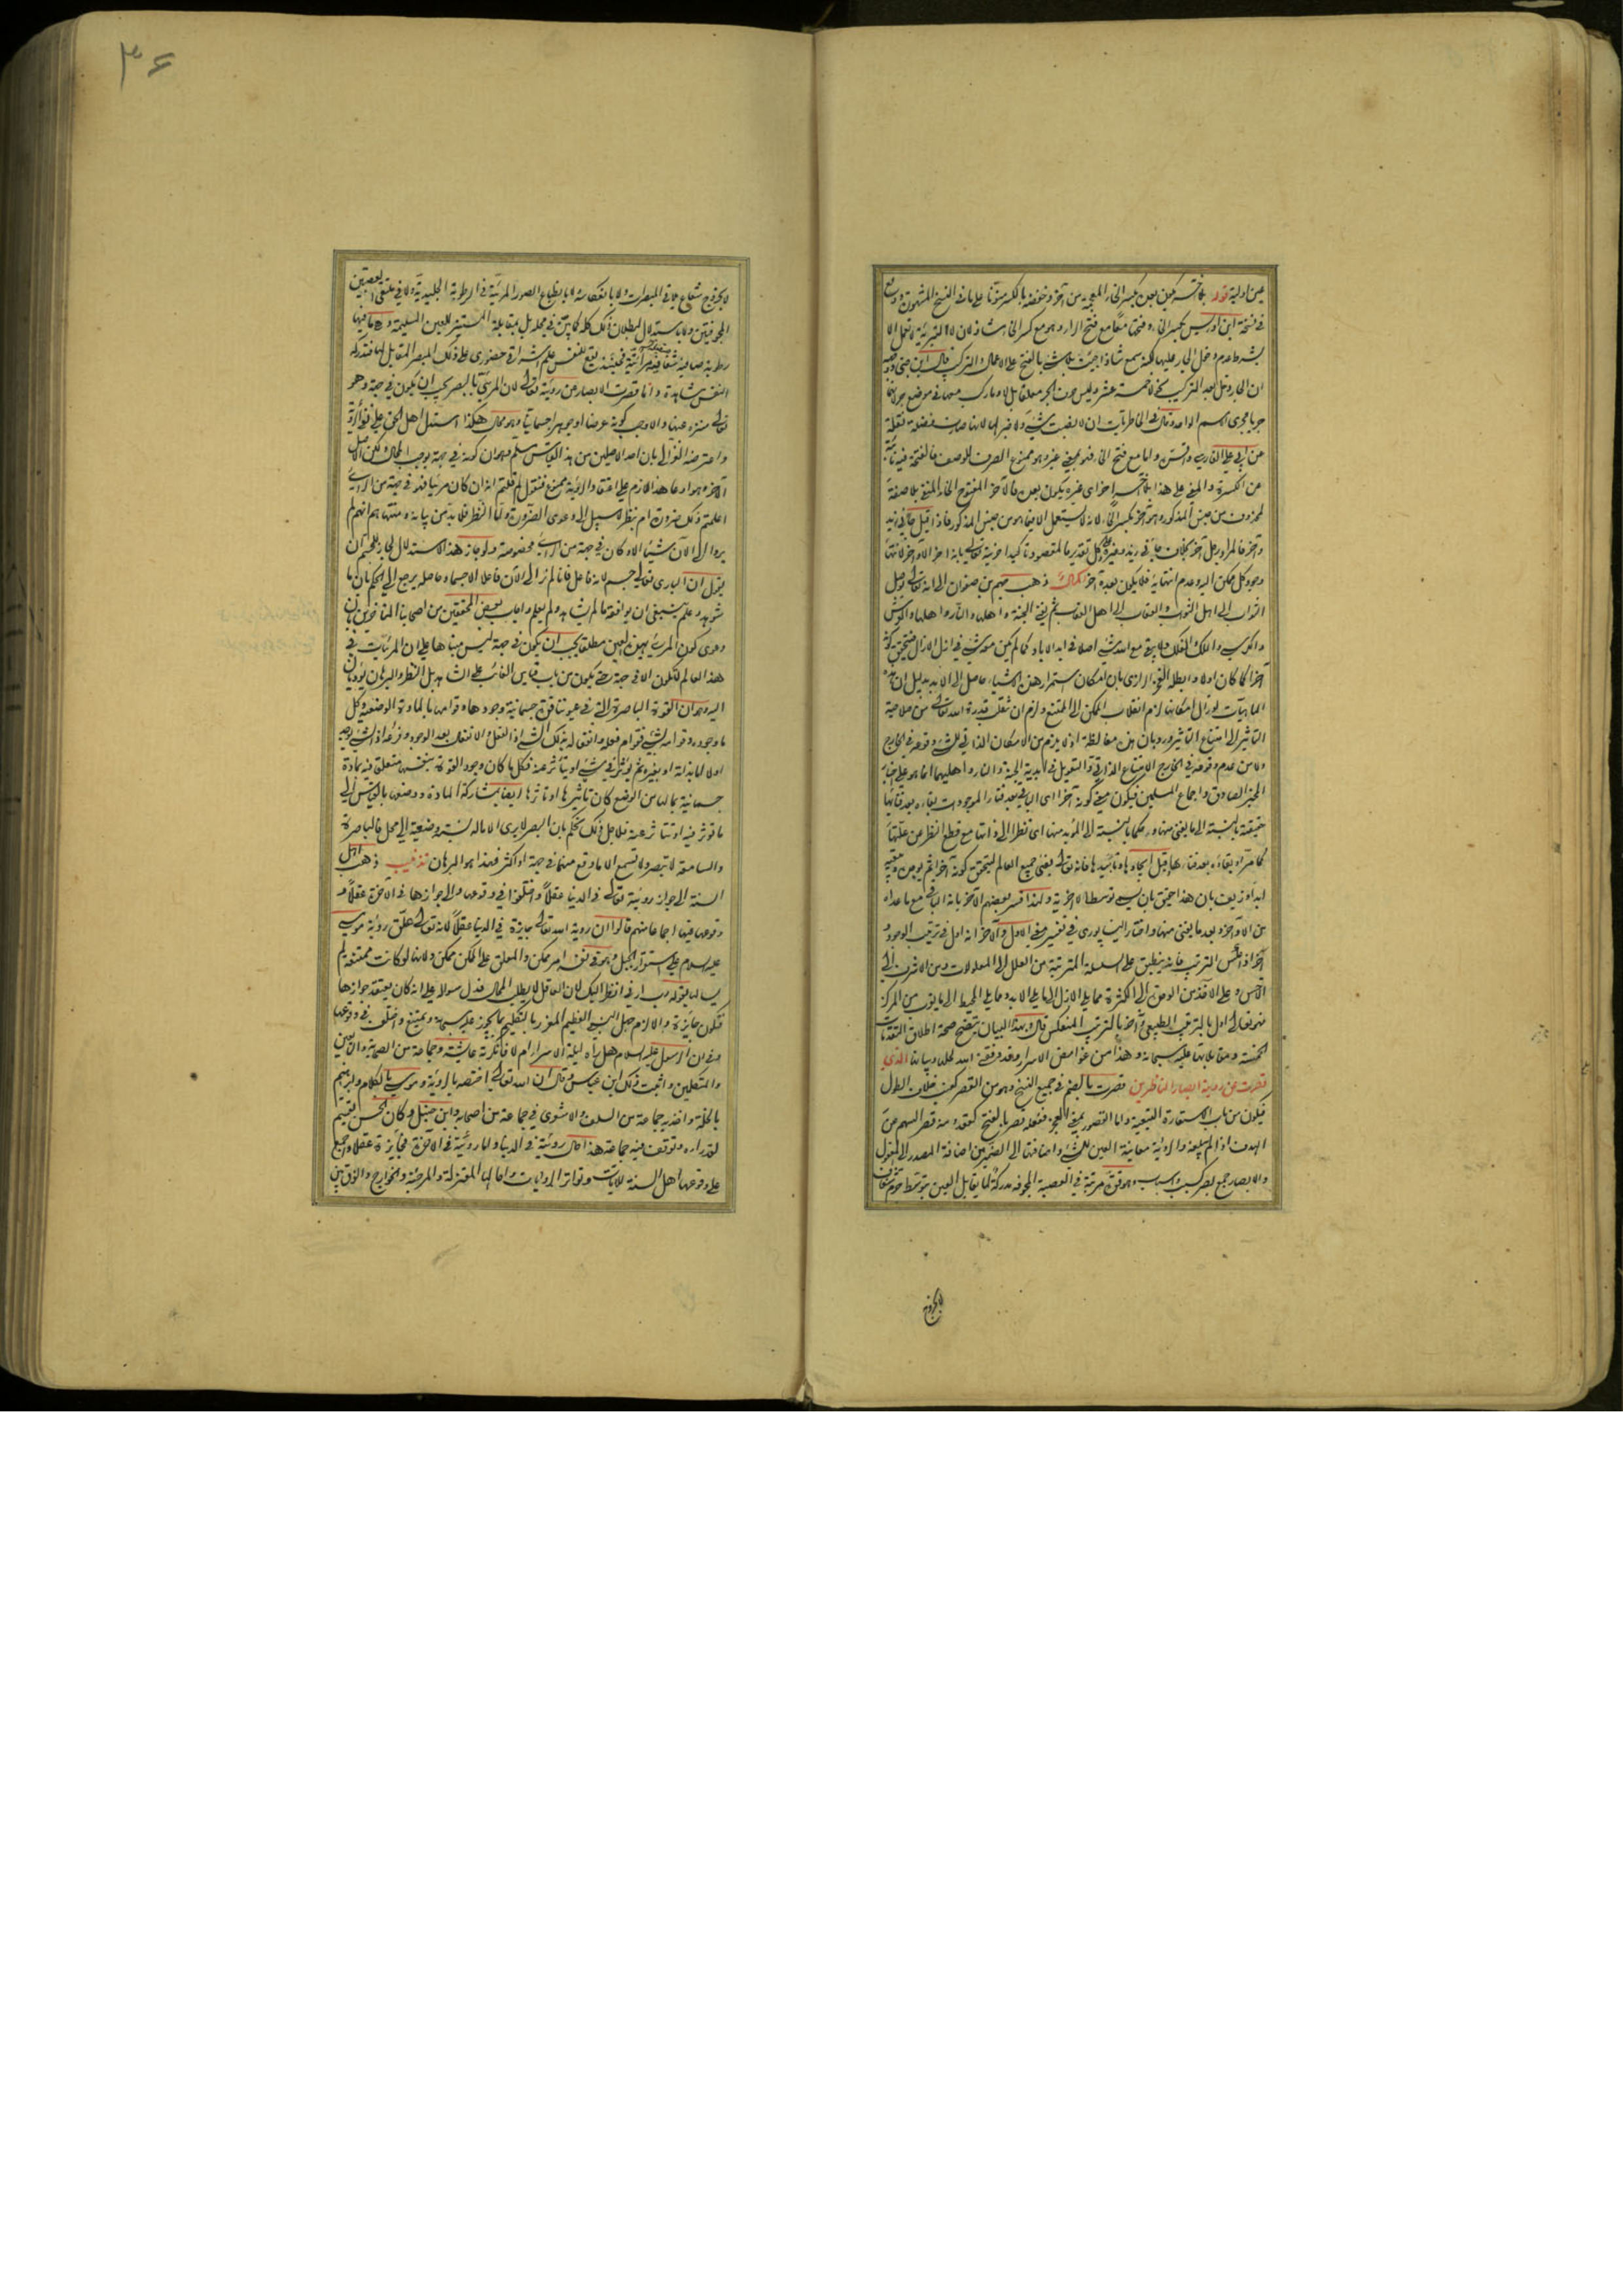 عين اوليته قوله بلا آخر يكون بعده بكسر الخاء المعجمة من آخر وخفضه بالكسر منونا على ما في النسخ المشهورة ووقع
في نسخة ابن ادريس بكسر الخاء وفتحها معا مع فتح الراء وهو مع كسر الخاء شاذ لان لا التبرئة لا تعمل الا
بشرط عدم دخل الجار عليها لكنه سمع شاذا جئت بلا شيء بالفتح على الاعمال والتركيب قال ابن جني وجهه
ان الجار دخل بعد التركيب نحو لا خمسة عشر وليس حرف الجر معلقا بل لا وما ركب معها في موضع جر لانهما
جريا مجرى الاسم الواحد وقال في الخاطريات ان لا نصبت شيء ولا خبر لها لانها صارت فضلة نقله
عن ابي علي الفارسي
عن الكسرة والمعنى على هذا بلا آخر اي غيره يكون بعده فالآخر المفتوح الخاء المنفي بلا صفة
لمحذوف من جنس المذكور وهو آخر بكسر الخاء لانه لا يستعمل الا فيما هو من جنس المذكور فاذا قيل جاءني زيد
وآخر فالمراد رجل آخر بخلاف جاءني زيد وغيره وعلى كل تقدير فالمقصود تاكيد آخريته تعالى بانه آخر الآخر لانتهاء
وجود كل ممكن اليه وعدم انتهائه فلا يكون بعده آخر اكمال ذهب جهم بن صفوان الى انه تعالى يوصل
الثواب الى اهل الثواب والعقاب الى اهل العقاب ثم يفني الجنة واهلها والنار واهلها والعرش
والكرسي والملك والفلك ولا يبقى مع الله شيء اصلا في ابد الآباد كما لم يكن معه شيء في ازل الآزال فيتحقق كونه
آخرا كما كان اولا وابطله الفخر الرازي بان امكان استمرار هذه الاشياء حاصل الى الابد بدليل ان هذه
الماهيات لو زال امكانها لزم انقلاب الممكن الى الممتنع ولزم ان تنقلب قدرة الله تعالى من صلاحية
التأثير الى امتناع التأثير ورد بان هذه مغالطة اذ لا يلزم من الامكان الذاتي للشيء وقوعه في الخارج
ولا من عدم وقوعه في الخارج الامتناع الذاتي والتعويل في ابدية الجنة والنار واهليهما انما هو على اخبار
المخبر الصادق واجماع المسلمين فيكون معنى كونه آخرا اي الباقي بعد فناء الموجودات بقاء بعد فنائها
حقيقة بالنسبة الى ما يفنى منها وحكما بالنسبة الى المؤبد منها اي نظرا الى ذاتها مع قطع النظر عن علتها
كما مر آه بقاءه بعد فنائها قبل ايجادها وتأبيدها فانه تعالى يفني جميع العالم ليتحقق كونه آخرا ثم يوجده ويبقيه
ابدا وزيف بان هذا تحقق بان ليس توسطا لآخريته ولهذا فسر بعضهم الآخر بانه الباقي مع ما عداه
من الآخرة بعد ما يفنى منها واختار النيسابوري في تفسير معنى الاول والآخر انه اول في ترتيب الوجود و
آخر اذا عكس الترتيب فانه ينطبق على السلسلة المترتبة من العلل الى المعلولات ومن الاشرف الى
الاخس وعلى الآخذ من الوحدة الى الكثرة مما يلي الازل الى ما يلي الابد ومما يلي المحيط الى ما يقرب من المركز
فهو تعالى اول بالترتيب الطبيعي وآخر بالترتيب المنعكس قال وبهذا البيان يتضح صحة اطلاق التقدمات
الخمسة ومقابلاتها عليه سبحانه وهذا من غوامض الاسرار وقد وفقني الله لحلها وبيانها الذي
قصرت عن رؤيته ابصار الناظرين قصرت بالضم في جميع النسخ وهو من القصر كعنب خلاف الطول
فيكون من باب الاستعارة التبعية واما القصور بمعنى العجز ففعله قصر بالفتح كقعد ومنه قصر السهم عن
الهدف اذا لم يبلغه والرؤية معاينة العين للشيء واضافتها الى الضمير من اضافة المصدر الى المفعول
والابصار جمع بصر كسبب واسباب وهو قوة مرتبة في العصبة المجوفة مدركة لما يقابل العين بتوسط جرم شفاف
لا بخروج
٣۶
لا بخروج شعاع يلاقي المبصرات ولا بانعكاسه ولا بانطباع الصور المرئية في الرطوبة الجليدية ولا في ملتقى العصبتين
المجوفتين ولا باستدلال لبطلان ذلك كله كما بين في محله بل بمقابلة المستنير للعين السليمة وهي ما فيها
رطوبة صافية شفافة صقيلة مرآئية فحينئذ يقع للنفس علم اشراقي حضوري على ذلك المبصر المقابل لها فتدركه
النفس مشاهدة وانما قصرت الابصار عن رؤيته تعالى لان المرئي بالبصر يجب ان يكون في جهة وهو
تعالى منزه عنها والا وجب كونه عرضا او جوهرا جسمانيا وهو محال هكذا استدل اهل الحق على نفي الرؤية
واعترضه الغزالي بان احد الاصلين من هذا القياس مسلم وهو ان كونه في جهة يوجب المحال لكن الاصل
الآخر وهو ادعاء هذا اللازم على اعتقاد الرؤية ممنوع فنقول لم قلتم انه ان كان مرئيا فهو في جهة من الرائي
اعلمتم ذلك ضرورة ام بنظر لا سبيل الى دعوى الضرورة واما النظر فلا بد من بيانه ومنتهاهم انهم لم
يروا الى الآن شيئا الا وكان في جهة من الرائي مخصوصة ولو جاز هذا الاستدلال لجاز للمجسم ان
يقول ان الباري تعالى جسم لانه فاعل فانا لم نر الى الآن فاعلا الا جسما وحاصله يرجع الى الحكم بان ما
شوهد وعلم ينبغي ان يوافقه ما لم يشاهد ولم يعلم واجاب بعض المحققين من اصحابنا المتأخرين بان
دعوى كون المرئي بهذه العين مطلقا يجب ان يكون في جهة ليس مبناها على ان المرئيات في
هذا العالم لا تكون الا في جهة حتى يكون من باب قياس الغائب على الشاهد بل النظر والبرهان يؤديان
اليه وهو ان القوة الباصرة التي في عيوننا قوة جسمانية وجودها وقوامها بالمادة الوضعية وكل
ما وجوده وقوامه بشيء فقوام فعله وانفعاله بذلك الشيء اذ الفعل والانفعال بعد الوجود وفرعه اذ الشيء يوجد
اولا اما بذاته او بغيره ثم يؤثر في شيء او يتأثر عنه فكل ما كان وجود القوة بنفسها متعلق فيه بمادة
جسمانية بما لها من الوضع كان تأثيرها او تأثرها ايضا بمشاركة المادة ووضعها بالقياس الى
ما تؤثر فيه او تتأثر عنه فلاجل ذلك نحكم بان البصر لا يرى الا ما له نسبة وضعية الى محل الباصرة
والسامعة لا تبصر ولا تسمع الا ما وقع منهما في جهة او اكثر فهذا هو البرهان تذنيب ذهب اهل
السنة الى جواز رؤيته تعالى في الدنيا عقلا واختلفوا في وقوعها والى جوازها في الآخرة عقلا و
وقوعها فيها اجماعا منهم قالوا ان رؤية الله تعالى جائزة في الدنيا عقلا لانه تعالى علق رؤية موسى
عليه السلام على استقرار الجبل وهو في نفسه امر ممكن والمعلق على الممكن ممكن ولانها لو كانت ممتنعة لم
يسألها بقوله رب ارني انظر اليك لان العاقل لا يطلب المحال فدل سؤاله على انه كان يعتقد جوازها
فتكون جائزة والا لزم جهل النبي العظيم المعزز بالتكليم بما يجوز عليه سبحانه ويمتنع واختلف في وقوعها
وفي ان الرسول عليه السلام هل رآه ليلة الاسراء ام لا فانكرته عائشة وجماعة من الصحابة والتابعين
والمتكلمين واثبت ذلك ابن عباس وقال ان الله تعالى اختصه بالرؤية وموسى بالكلام وابراهيم
بالخلة واخذ به جماعة من السلف والاشعري في جماعة من اصحابه وابن حنبل وكان الحسن يقسم
لقد رآه وتوقف فيه جماعة هذا حال رؤيته في الدنيا واما رؤيته في الآخرة فجائزة عقلا واجمع
على وقوعها اهل السنة للآيات وتواتر الروايات واحالها المعتزلة والمرجئة والخوارج والفرق بين